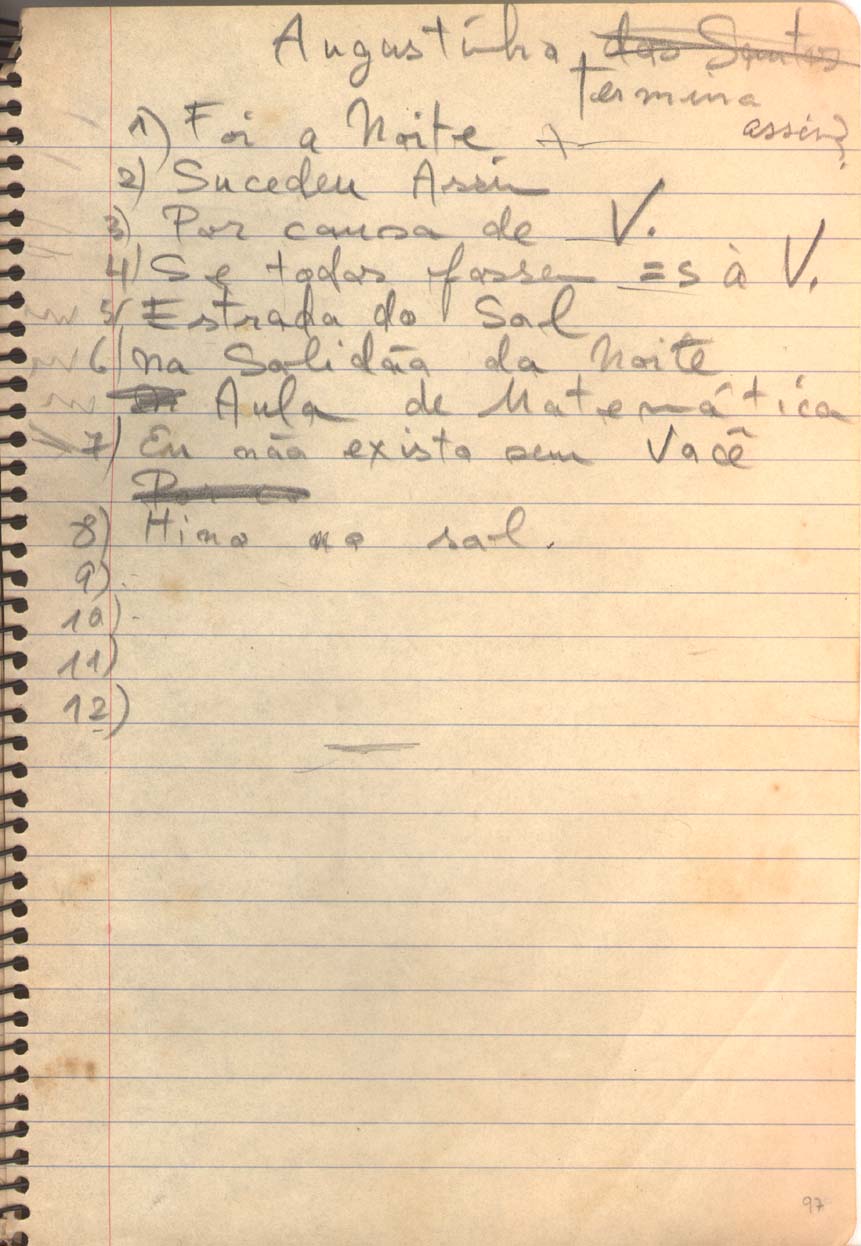 Augustinho dos Santos
termina
assim?
1) Foi a Noite
2) Sucedeu Assim
3) Por causa de V.
4) Se todos fossem =s à V.
5) Estrada do Sol
6) na Solidão da Noite
Aula de Matemática
7) Eu não existo sem Você
8) Hino ao sol.
9)
10)
11)
12)
97